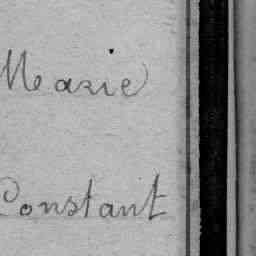 Marie
Constant